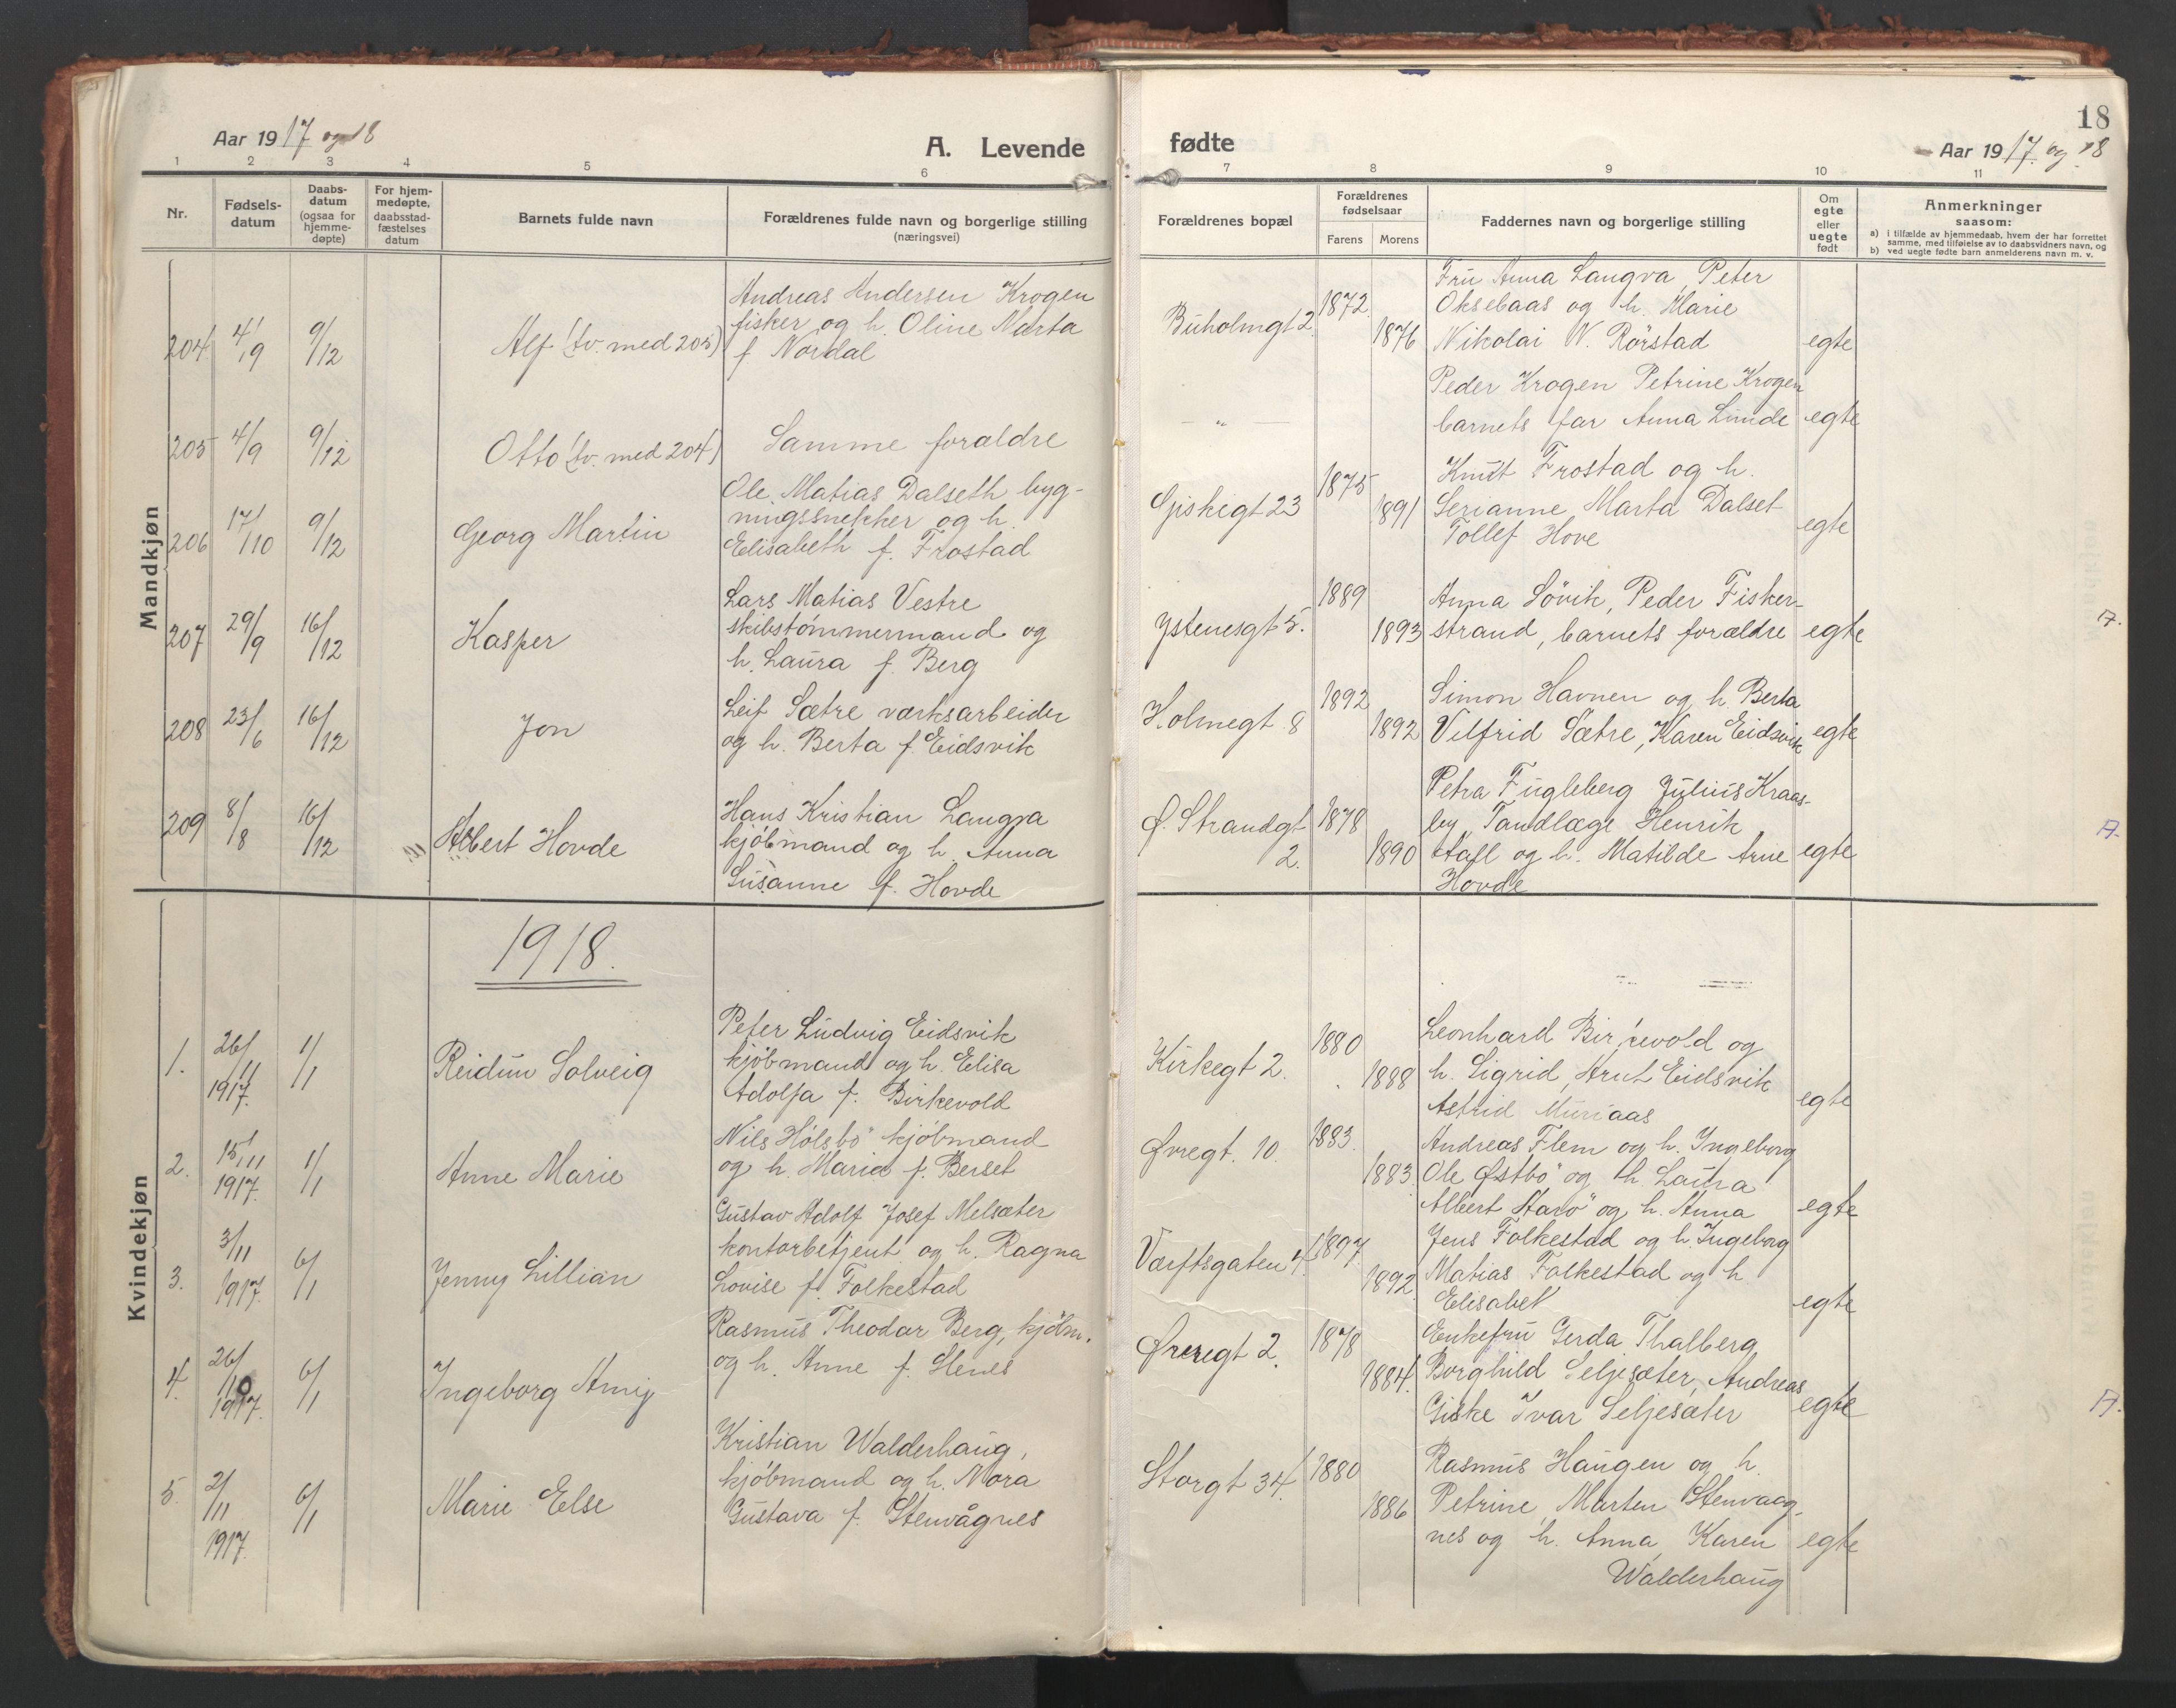 18
Aar 1917 og 18
A. Levende
fødte
Aar 1917. og 18
1 2 3 4 5 6 7 8 9 10 11
Nr.
Fødsels-
datum
Daabs-
datum
(ogsaa for
hjemme-
døpte)
For hjem-
medøpte,
daabsstad-
fæstelses
datum
Barnets fulde navn
Forældrenes fulde navn og borgerlige stilling
(næringsvei)
Forældrenes bopæl
Forældrenes
fødselsaar
Farens Morens
Faddernes navn og borgerlige stilling
Om
egte
eller
uegte
født
Anmerkninger
saasom:
a) i tilfælde av hjemmedaab, hvem der har forrettet
samme, med tilføielse av to daabsvidners navn, og
b) ved uegte fødte barn anmelderens navn m. v.
Mandkjøn
204. 4/9 9/12
Alf (tv. med 205)
Andreas Andersen Krogen
fisker og h. Oline Marta
f. Nordal
Buholmgt 2.
1872.
1876
Fru Anna Langva, Peter
Oksebaas og h. Marie
Nikolai N. Rörstad
egte
205 4/9 9/12
Otto (tv. med 204)
Samme forældre
— " —
Peder Krogen Petrine Krogen
barnets far Anna Linde
egte
206 17/10 9/12
Georg Martin
Ole Matias Dalseth byg-
ningssnekker og h.
Elisabeth f. Frostad
Giskegt 23
1875
1891
Knut Frostad og h.
Serianne, Marta Dalset
Tollef Hove
egte
207 29/9 16/12
Kasper
Lars Matias Vestre
skibstømmermand og
h. Laura f. Berg
Ystenesgt 5.
1889
1893
Anna Sövik, Peder Fisker-
strand, barnets forældre
egte
A.
208 23/6 16/12
Jon
Leif Sætre værksarbeider
og h. Berta f. Eidsvik
Holmegt. 8
1892
1892
Simon Havnen og h. Berta
Vilfrid Sætre, Karen Eidsvik
egte
209 8/8 16/12
Albert Hovde
Hans Kristian Langva
kjöbmand og h. Anna
Susanne f. Hovde
Ø. Strandgt
2.
1878
1890
Petra Fugleberg Julius Kraas-
by, Tandlæge Henrik
og h. Matilde Arne
Hovde
egte
A.
1918.
Kvindekjøn
1. 26/11 1917. 1/1
Reidun Solveig
Peter Ludvig Eidsvik
kjöbmand og h. Elisa
Adolfa f. Birkevold
Kirkegt 2.
1880
1888
Leonhard Birkevold og
h. Sigrid, Knut Eidsvik
Astrid Muriaas
egte
2. 15/11 1917. 1/1
Anne Marie
Nils Hólsbö kjöbmand
og h. Maria f. Berset
Øvregt. 10.
1883.
1883.
Andreas Flem og h. Ingeborg
Ole Østbö og h. Laura
Albert Harö og h. Anna
egte
3. 3/11 1917. 6/1
Jenny Lillian
Gustav Adolf Josef Melsæter
kontorbetjent og h. Ragna
Lovise f. Folkestad
Værftsgaten 4.
1897.
1892.
Jens Folkestad og h. Ingeborg
Matias Folkestad og h.
Elisabet
egte
4. 26/10 1917. 6/1
Ingeborg
Rasmus Theodor Berg, kjöbm.
og h. Anne f. Stenes
Øvregt 2.
1878
1884.
Enkefru Gerda Thalberg
Borghild Seljesæter, Andreas
Giske Ivar Seljesæter
egte
A.
5. 2/11 1917. 6/1
Marie Else
Kristian Walderhaug,
kjöbmand og h. Nora
Gustava f. Stenvågnes
Storgt 34.
1880
1886
Rasmus Haugen og h.
Petrine, Morten Stenvaag-
nes og h. Anna, Karen
Walderhaug
egte